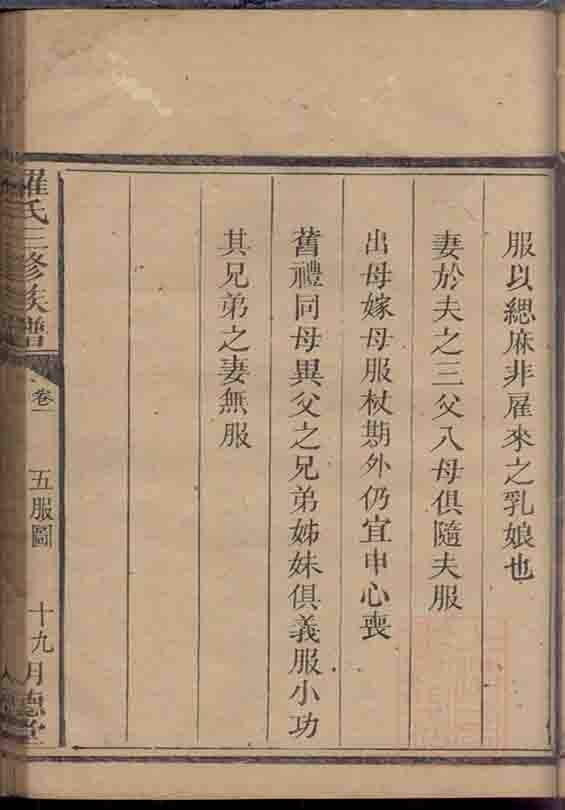 服以緦麻非雇來之乳娘也
妻於夫之三父八母俱隨夫服
出母嫁母服杖期外仍宜申心喪
舊禮同母異父之兄弟姊妹俱義服小功
其兄弟之妻無服
羅氏三修族譜
卷一
五服圖
十九
德堂